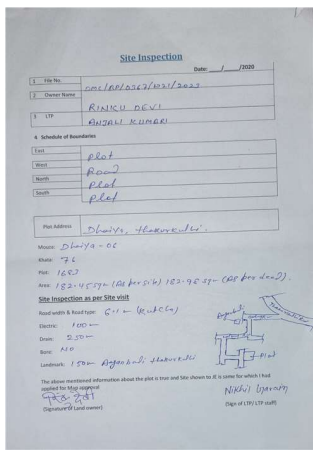 Site Inspection
Date: ___/___/2020
1 File No. DMC/BP/0367/W21/2023
2 Owner Name RINKU DEVI
3 LTP ANJALI KUMARI
4 Schedule of Boundaries
East Plot
West Road
North Plot
South Plot
Plot Address Dhaiya, thakurkulhi.
Mouza: Dhaiya - 06
Khata: 76
Plot: 1683
Area: 182.45 sqm (As per site) 182.96 sqm (As per deed).
Site Inspection as per Site visit
Road width & Road type: (Kutcha)
Electric: 100 m
Drain: 250 m
Bore: NO
Landmark: 150 m thakurkulhi
Plot
The above mentioned information about the plot is true and Site shown to JE is same for which I had
applied for Map approval
(Signature of Land owner)
Nikhil
(Sign of LTP/ LTP staff)